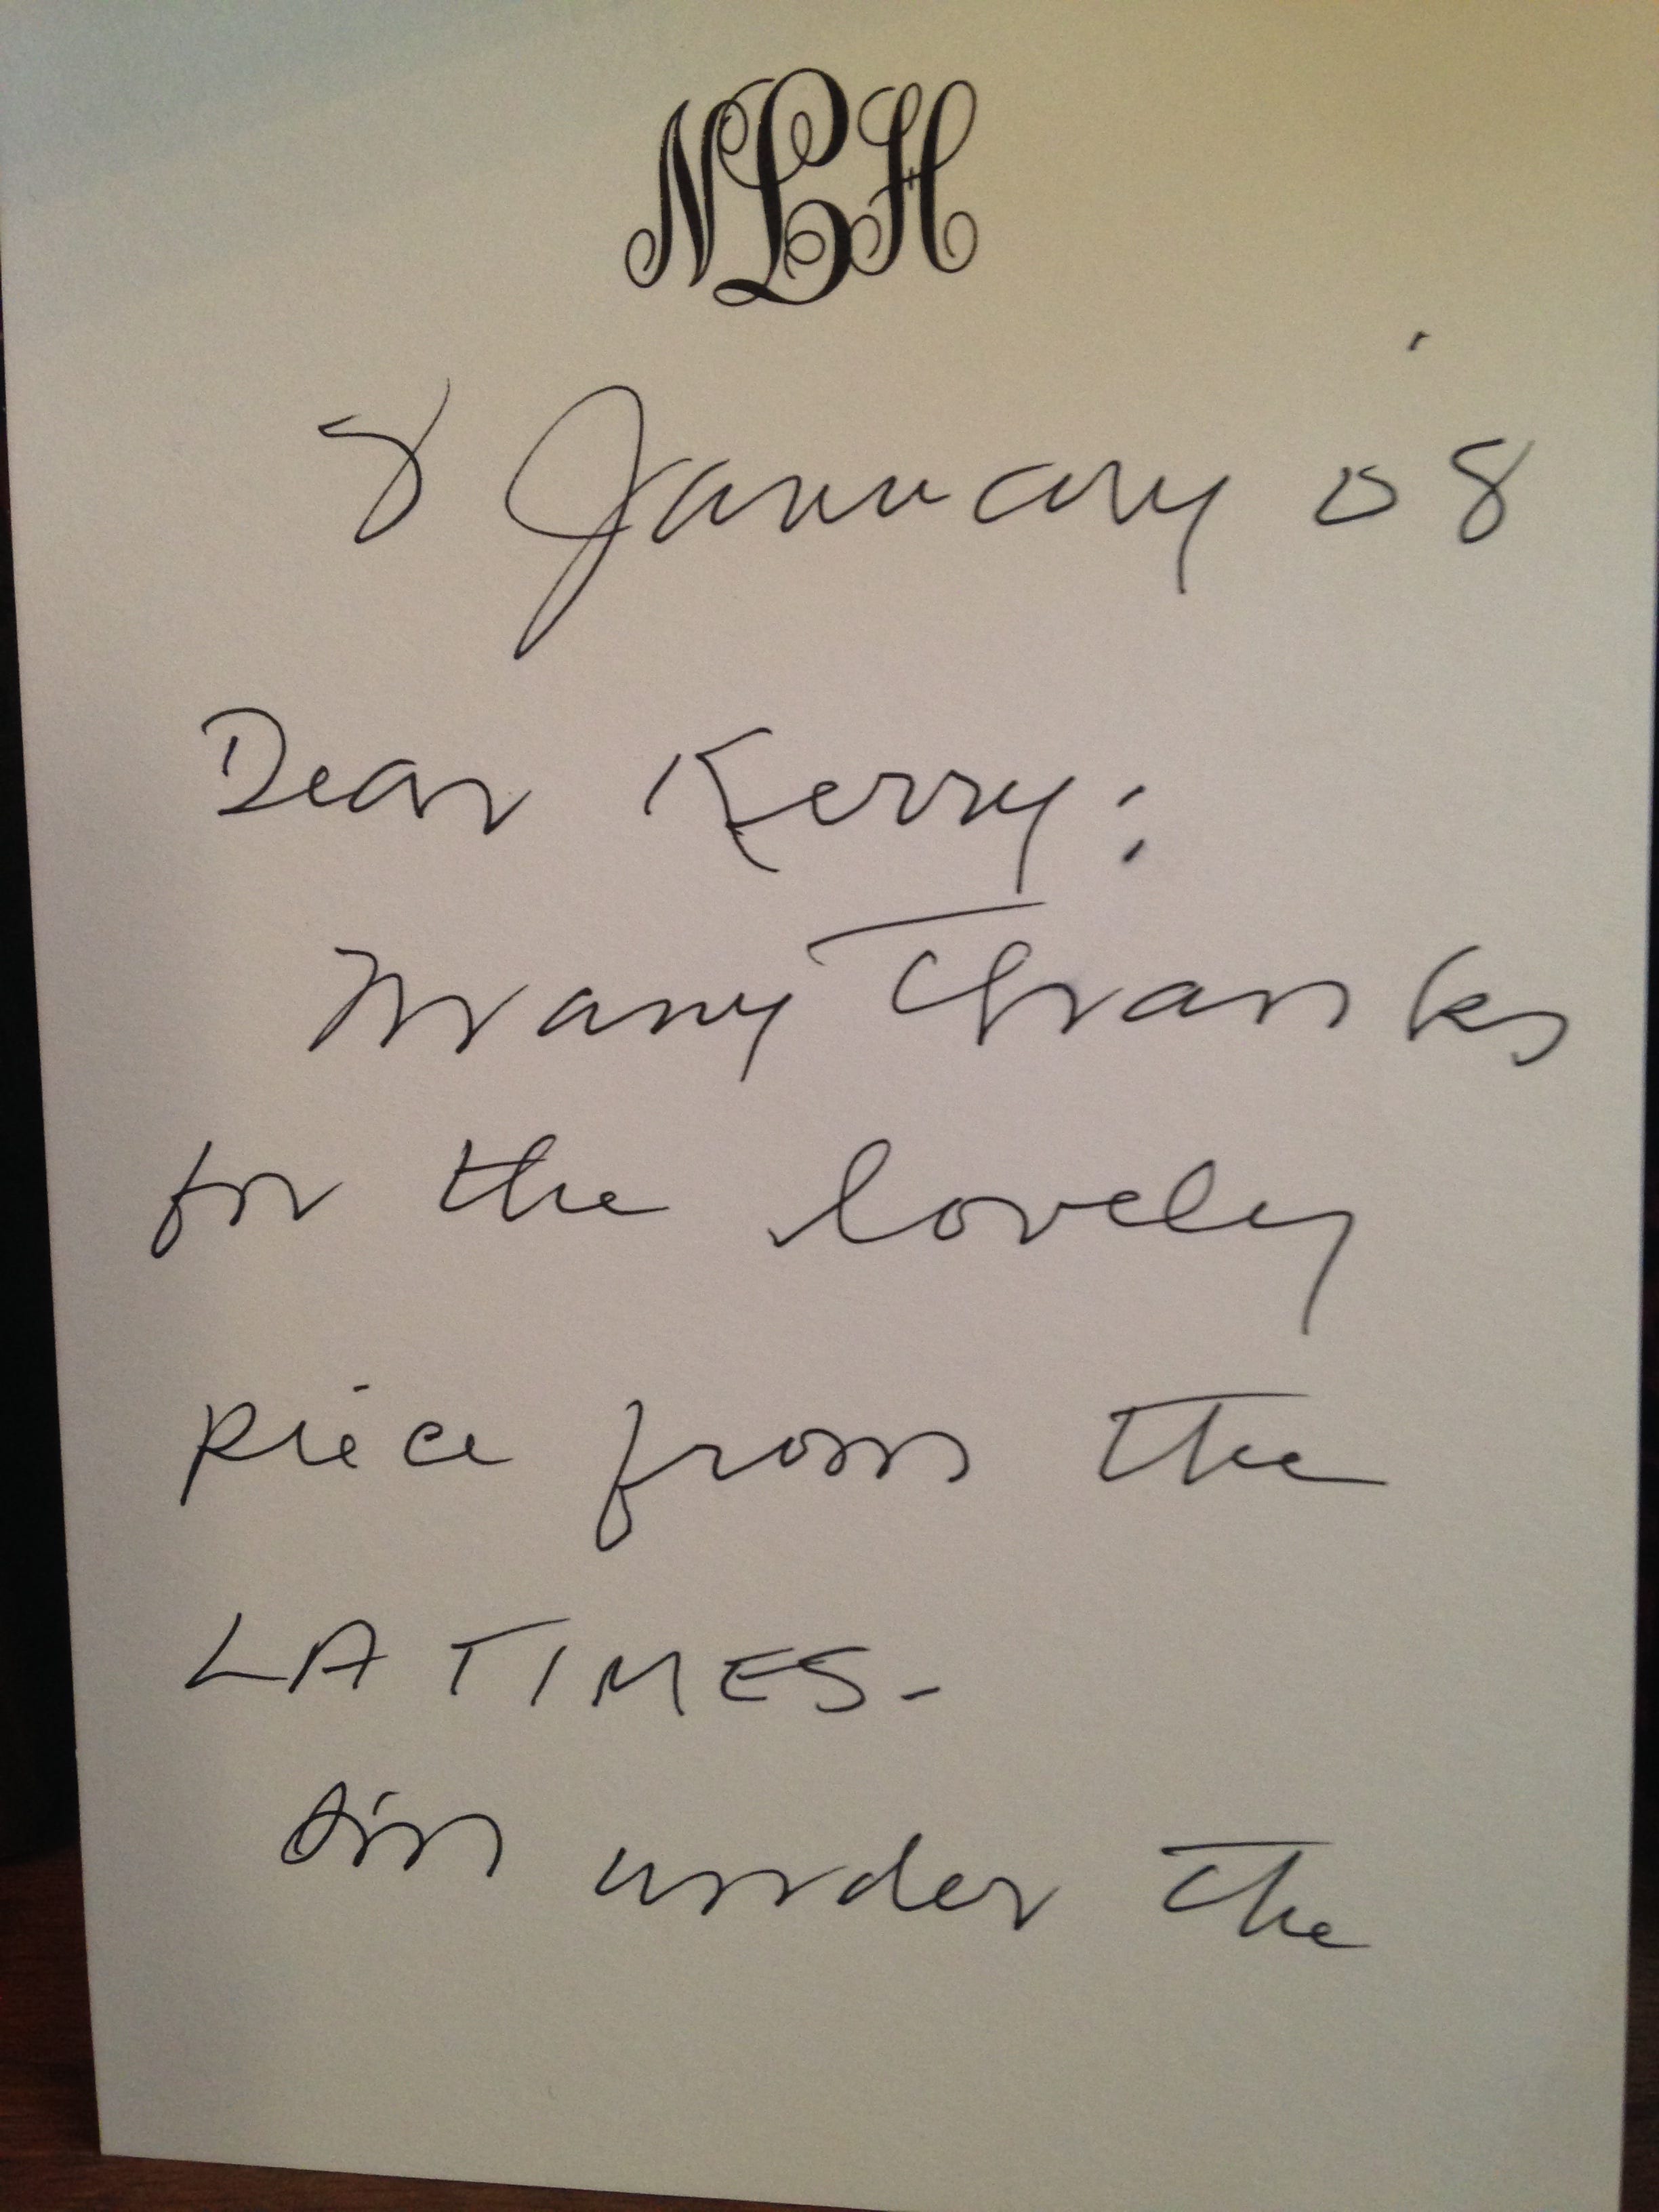 NLH
8 January 08
Dear Kerry:
Many Thanks
for the lovely
piece from the
LA TIMES-
I'm under the